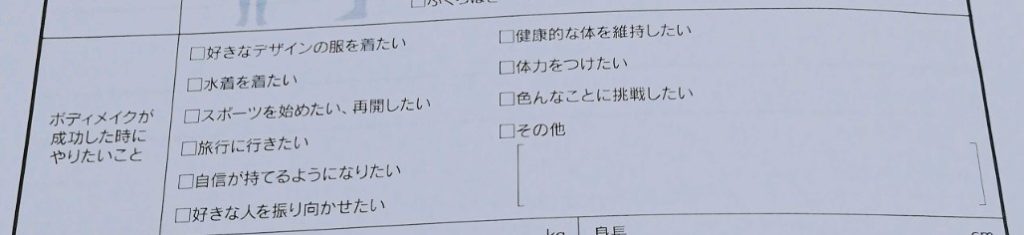 □ふくらはぎ
ボディメイクが
成功した時に
やりたいこと
□好きなデザインの服を着たい
□水着を着たい
□スポーツを始めたい、再開したい
□旅行に行きたい
□自信が持てるようになりたい
□好きな人を振り向かせたい
□健康的な体を維持したい
□体力をつけたい
□色んなことに挑戦したい
□その他
kg
身長
cm